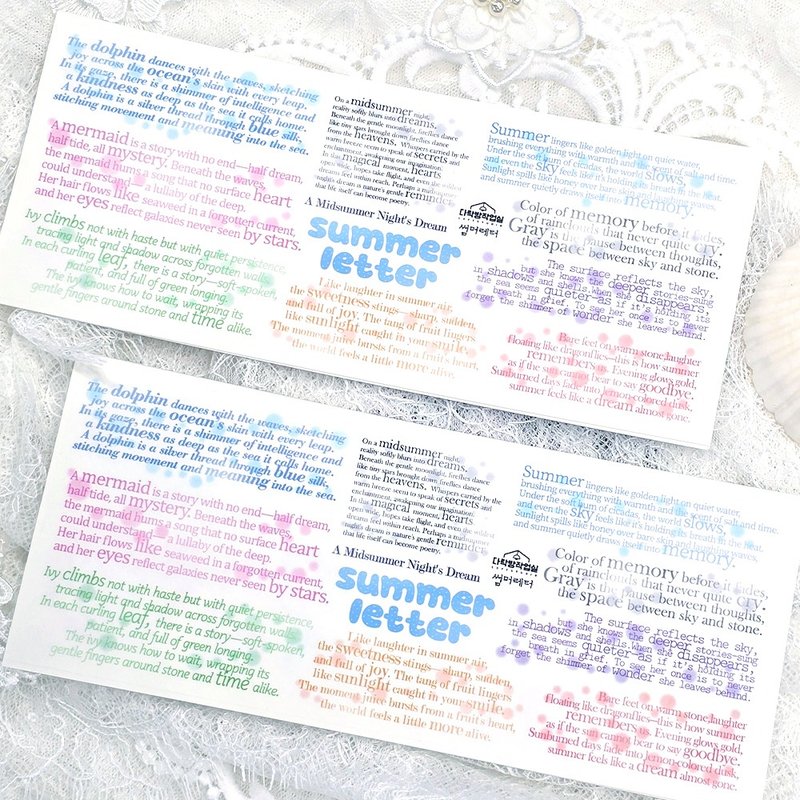 The dolphin dances with the waves, sketching
joy across the ocean's skin with every leap.
In its gaze, there is a shimmer of intelligence and
a kindness as deep as the sea it calls home.
A dolphin is a silver thread through blue silk,
stitching movement and meaning into the sea.
A mermaid is a story with no end—half dream,
half tide, all mystery. Beneath the waves,
the mermaid hums a song that no surface heart
could understand—a lullaby of the deep.
Her hair flows like seaweed in a forgotten current,
and her eyes reflect galaxies never seen by stars.
Ivy climbs not with haste but with quiet persistence,
tracing light and shadow across forgotten walls.
In each curling leaf, there is a story—soft-spoken,
patient, and full of green longing.
The ivy knows how to wait, wrapping its
gentle fingers around stone and time alike.
On a midsummer night,
reality softly blurs into dreams.
Beneath the gentle moonlight, fireflies dance
like tiny stars brought down fireflies dance
from the heavens. Whispers carried by the
warm breeze seem to speak of secrets and
enchantment, awakening our imagination.
In this magical moment, hearts
open wide, hopes take flight, and even the wildest
dreams feel within reach. Perhaps a midsummer
night's dream is nature's gentle reminder
that life itself can become poetry.
A Midsummer Night's Dream
summer
letter
다락방작업실
썸머레터
Like laughter in summer air,
the sweetness stings—sharp, sudden,
and full of joy. The tang of fruit lingers
like sunlight caught in your smile.
The moment juice bursts from a fruit's heart,
the world feels a little more alive.
Summer lingers like golden light on quiet water,
brushing everything with warmth and the scent of salt and time.
Under the soft hum of cicadas, the world slows,
and even the sky feels like it's holding its breath in the heat.
Sunlight spills like honey over bare shoulders and sleepy waves,
and summer quietly draws itself into memory.
Color of memory before it fades,
of rainclouds that never quite cry.
Gray is the pause between thoughts,
the space between sky and stone.
The surface reflects the sky,
but she knows the deeper stories-sung
in shadows and shells.when she disappears,
the sea seems quieter-as if it's holding its
breath in grief. To see her once is to never
forget the shimmer of wonder she leaves behind.
Bare feet on warm stone,laughter
Floating like dragonflies—this is how summer
remembers us. Evening glows gold,
as if the sun cannot bear to say goodbye.
Sunburned days fade into lemon-colored dusk,
summer feels like a dream almost gone.
The dolphin dances with the waves, sketching
joy across the ocean's skin with every leap.
In its gaze, there is a shimmer of intelligence and
a kindness as deep as the sea it calls home.
A dolphin is a silver thread through blue silk,
stitching movement and meaning into the sea.
A mermaid is a story with no end—half dream,
half tide, all mystery. Beneath the waves,
the mermaid hums a song that no surface heart
could understand—a lullaby of the deep.
Her hair flows like seaweed in a forgotten current,
and her eyes reflect galaxies never seen by stars.
Ivy climbs not with haste but with quiet persistence,
tracing light and shadow across forgotten walls.
In each curling leaf, there is a story—soft-spoken,
patient, and full of green longing.
The ivy knows how to wait, wrapping its
gentle fingers around stone and time alike.
On a midsummer night,
reality softly blurs into dreams.
Beneath the gentle moonlight, fireflies dance
like tiny stars brought down fireflies dance
from the heavens. Whispers carried by the
warm breeze seem to speak of secrets and
enchantment, awakening our imagination.
In this magical moment, hearts
open wide, hopes take flight, and even the wildest
dreams feel within reach. Perhaps a midsummer
night's dream is nature's gentle reminder
that life itself can become poetry.
A Midsummer Night's Dream
summer
letter
다락방작업실
썸머레터
Like laughter in summer air,
the sweetness stings—sharp, sudden,
and full of joy. The tang of fruit lingers
like sunlight caught in your smile.
The moment juice bursts from a fruit's heart,
the world feels a little more alive.
Summer lingers like golden light on quiet water,
brushing everything with warmth and the scent of salt and time.
Under the soft hum of cicadas, the world slows,
and even the sky feels like it's holding its breath in the heat.
Sunlight spills like honey over bare shoulders and sleepy waves,
and summer quietly draws itself into memory.
Color of memory before it fades,
of rainclouds that never quite cry.
Gray is the pause between thoughts,
the space between sky and stone.
The surface reflects the sky,
but she knows the deeper stories-sung
in shadows and shells.when she disappears,
the sea seems quieter-as if it's holding its
breath in grief. To see her once is to never
forget the shimmer of wonder she leaves behind.
Bare feet on warm stone,laughter
Floating like dragonflies—this is how summer
remembers us. Evening glows gold,
as if the sun cannot bear to say goodbye.
Sunburned days fade into lemon-colored dusk,
summer feels like a dream almost gone.